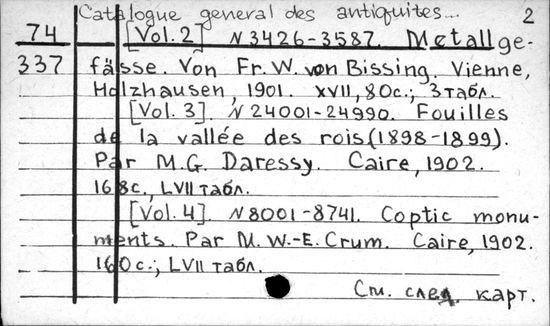 Catalogue general des antiquites... 2
74 [Vol. 2] N 3426-3587. Metallge-
337 fässe. Von Fr. W. von Bissing. Vienne,
Holzhausen, 1901. XVII, 80с.; 3 табл.
[Vol. 3]. N 24001-24990. Fouilles
de la vallée des rois (1898-1899).
Par M.G. Daressy. Caire, 1902.
168с., LVII табл.
[Vol. 4]. N 8001-8741. Coptic monu-
ments. Par M. W.-E. Crum. Caire, 1902.
160с.; LVII табл.
См. след. карт.